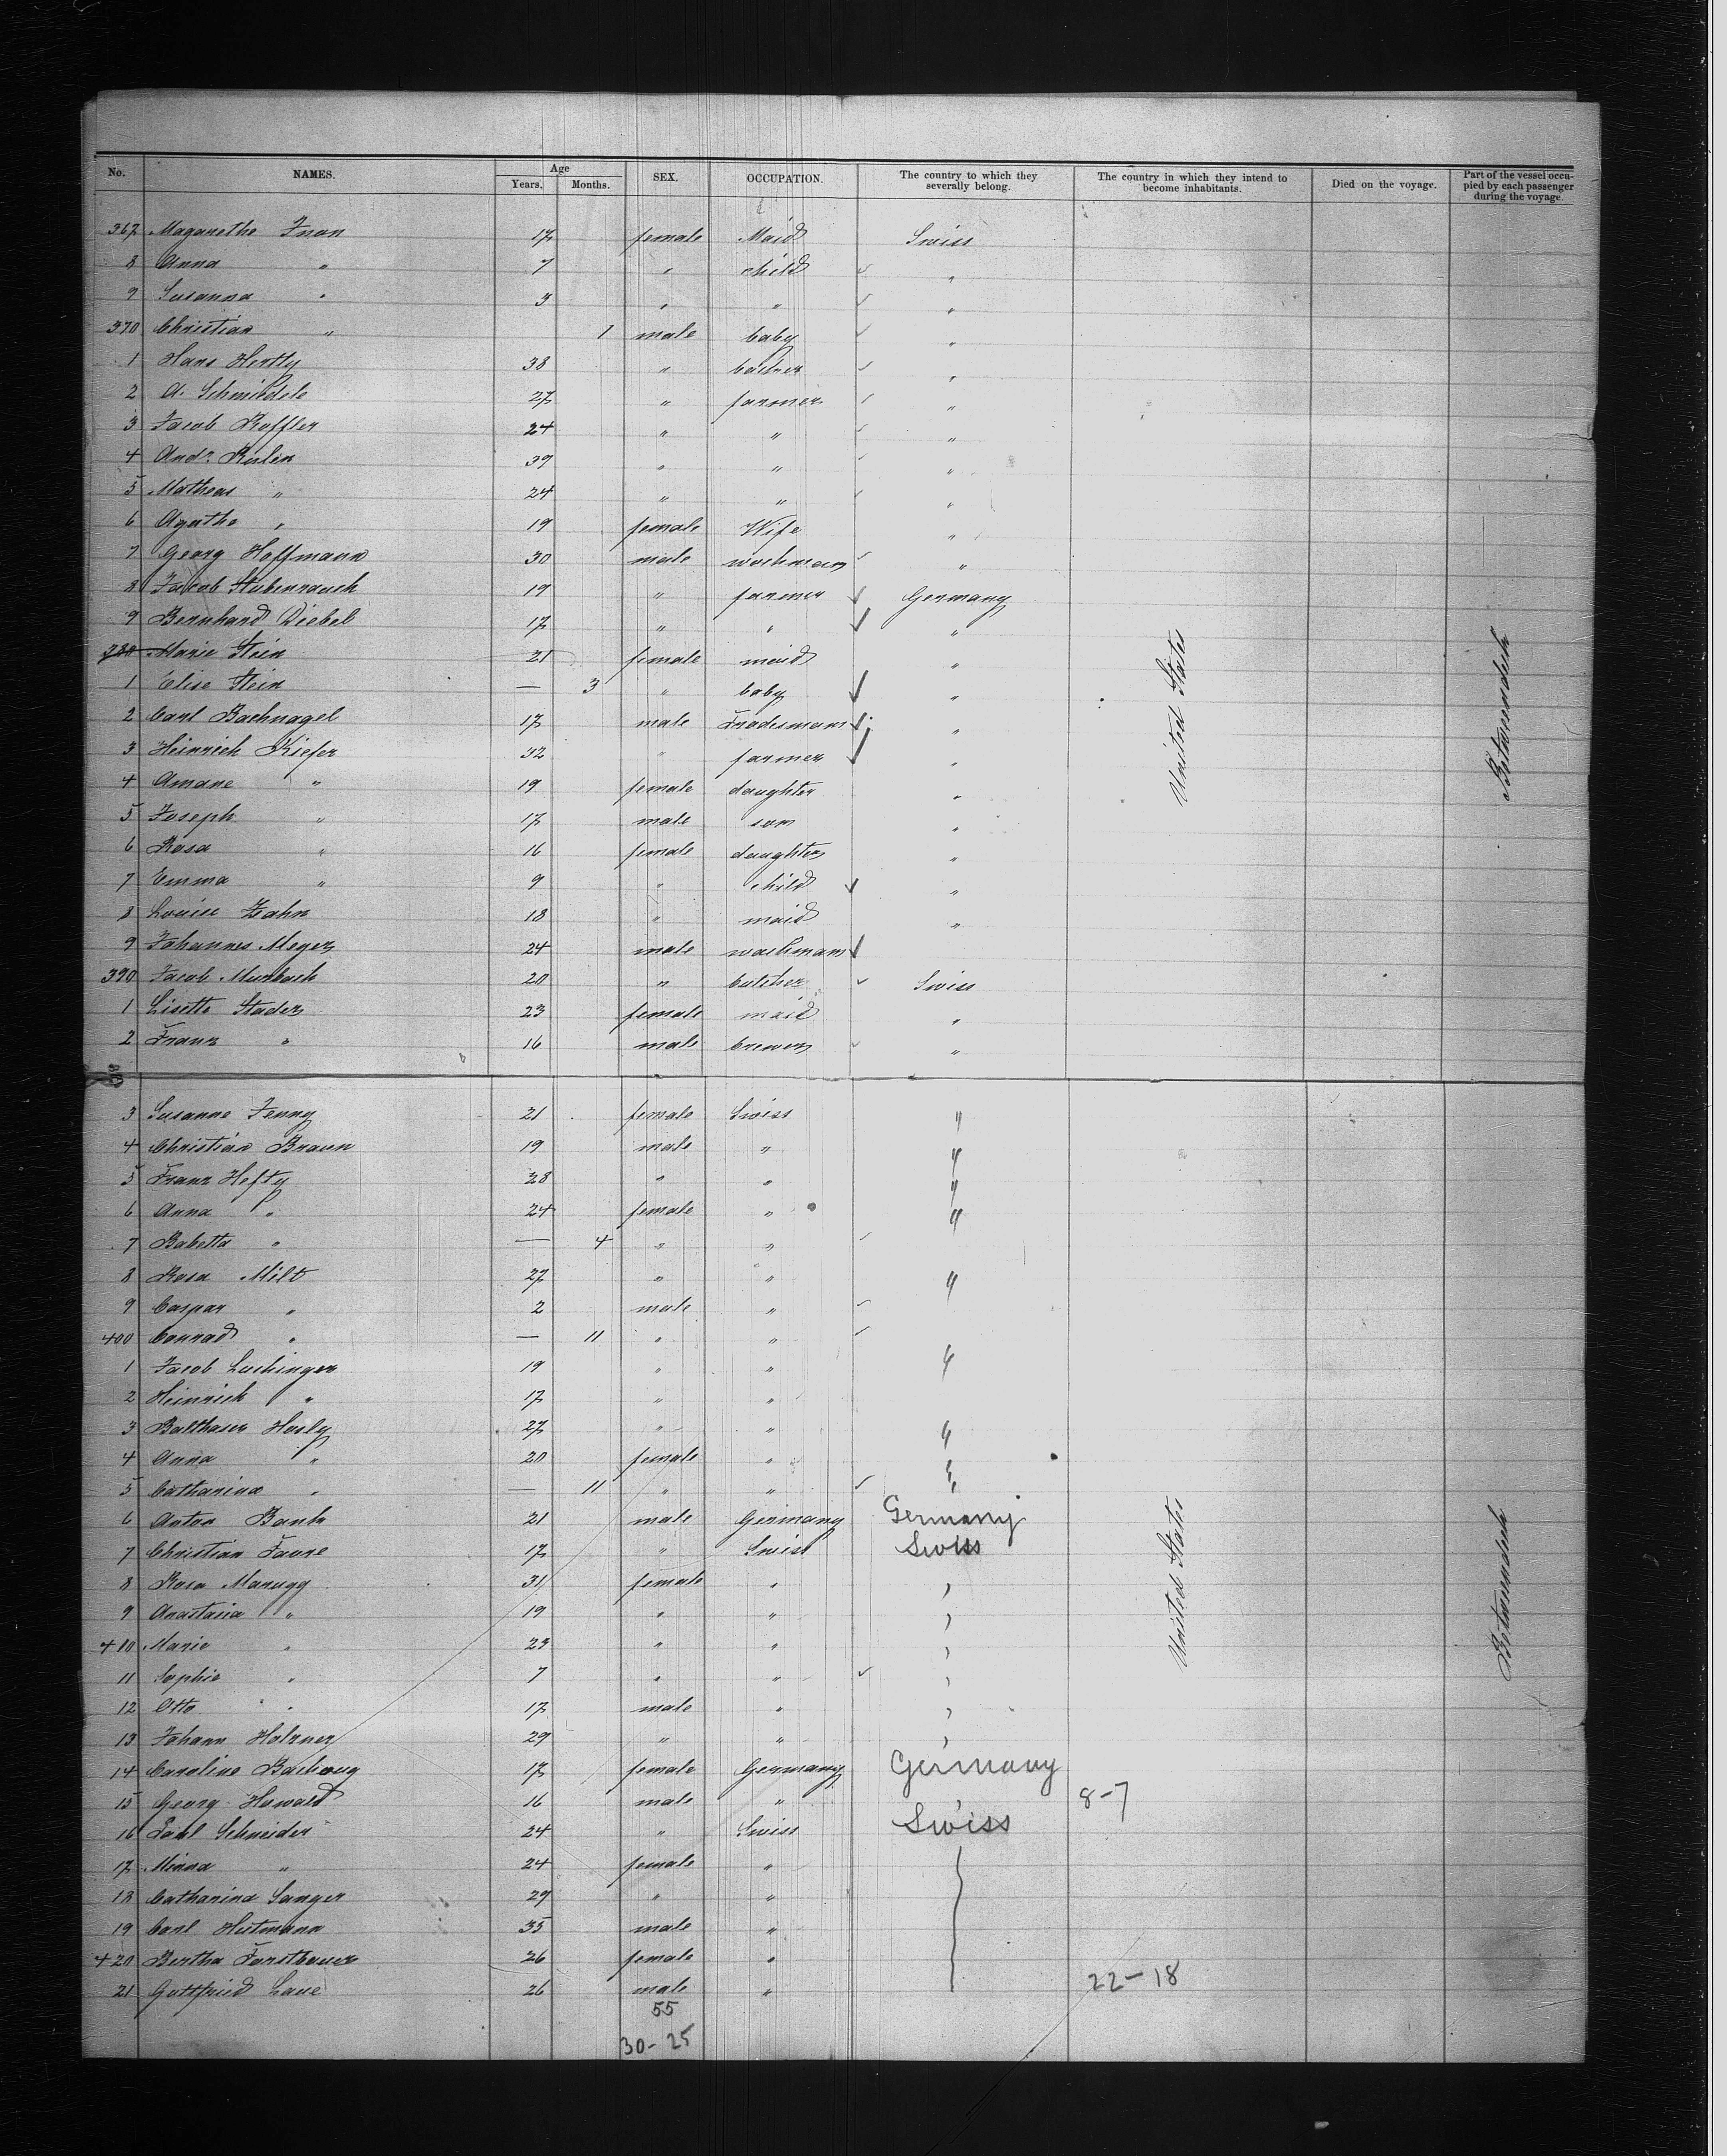 No. NAMES. Age Years. Months. SEX. OCCUPATION. The country to which they severally belong. The country in which they intend to become inhabitants. Died on the voyage. Part of the vessel occupied by each passenger during the voyage.
367 Magarethe 17 female Maid Swiss
8 Anna " 7 " child "
9 Susanna " 3 " " "
370 Christian " 1 male baby "
1 Hans Hertly 38 " "
2 A. 27 " farmer "
3 Jacob Koffler 24 " " "
4 Andr. 39 " " "
5 Matheas " 24 " " "
6 Agathe " 19 female Wife "
7 Georg Hoffmann 30 male workman "
8 Jacob Stubenrauch 19 " farmer Germany
9 Bernhard Diebel 17 " " "
380 Marie Stein 21 female maid "
1 Elise Stein — 3 " baby "
2 Carl Bachnagel 17 male Tradesmann "
3 Heinrich Kiefer 32 " farmer "
4 Amane " 19 female daughter "
5 Joseph " 17 male son "
6 Rosa " 16 female daughter "
7 Emma " 9 " child "
8 Louise Zahn 18 " maid "
9 Johannes Meyer 24 male workmann
390 Jacob Murbach 20 " butcher Swiss
1 Lisette Stader 23 female maid "
2 Franz " 16 male brewer "
United States
3 Susanne Jenny 21 female Swiss "
4 Christian Braun 19 male " "
5 Franz Hefty 28 " " "
6 Anna " 24 female " "
7 Babetta " — 4 " "
8 Rosa Milt 27 " " "
9 Caspar " 2 male "
400 Conrad " — 11 " "
1 Jacob Luchinger 19 " " "
2 Heinrich " 17 " "
3 Balthaser Hosly 27 " " "
4 Anna " 20 female " "
5 Catharina " — 11 " " "
6 Anton Bank 21 male Germany Germany
7 Christian Favre 17 " Swiss Swiss
8 Rosa Marugg 31 female " "
9 Anastasia " 19 " " "
410 Marie " 23 " " "
11 Sophie " 7 " " "
12 Otto " 17 male " "
13 Johann Holzner 29 " " "
14 Caroline 17 female Germany Germany
15 Georg Howald 16 male " " 8-7
16 Schneider 24 " Swiss Swiss
17 Minna " 24 female "
18 Catharina Sanger 29 " "
19 Carl Hutmann 35 male "
420 Bertha Forstbauer 26 female "
21 Gottfried Laue 26 male " 22-18
United States
55
30-25